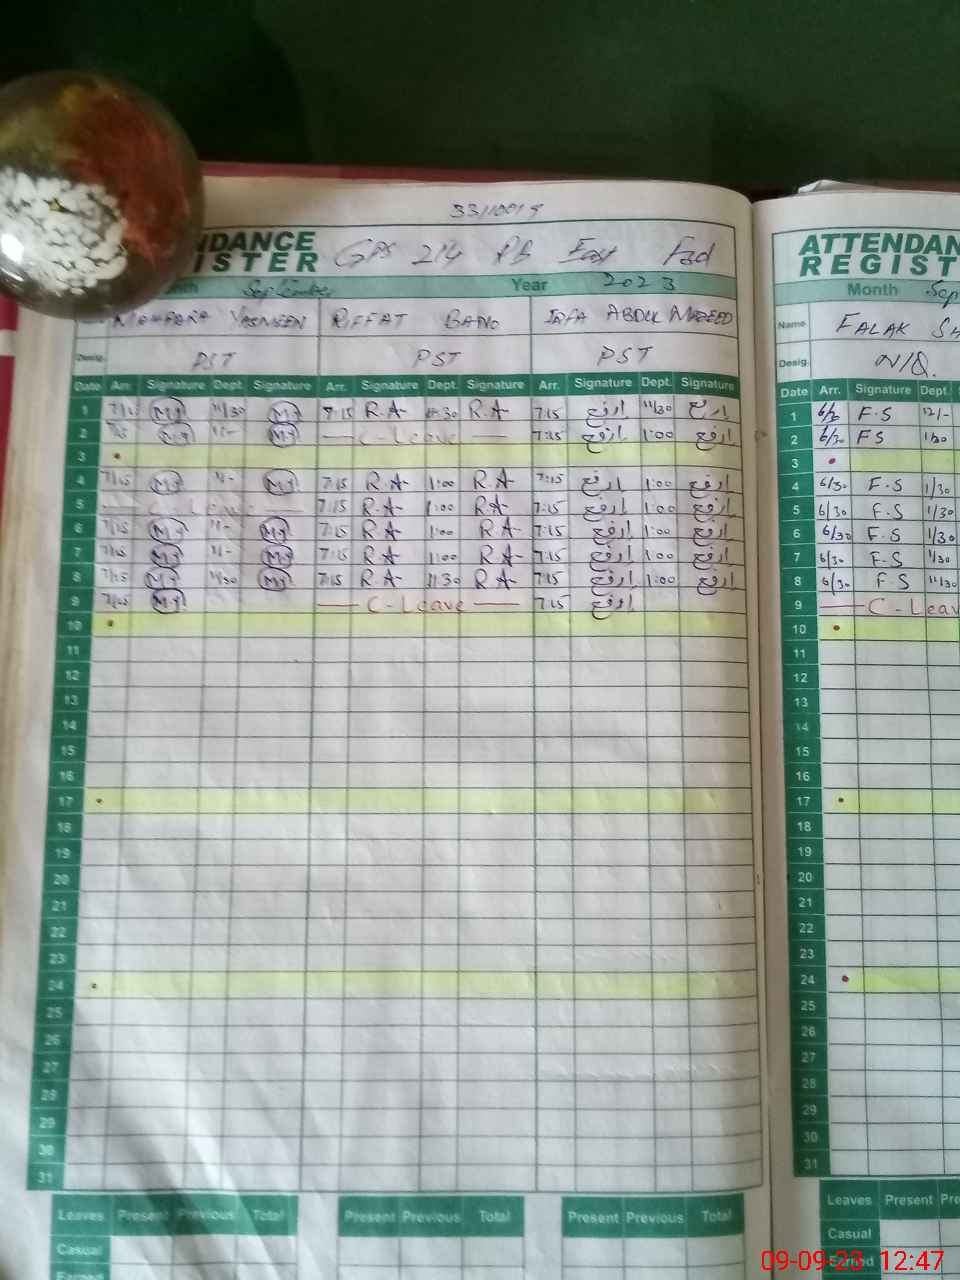 33110019
NDANCE
ISTER
GPS 214 RB East Fsd
nth September Year 2023
YASMEEN RIFFAT BANO IRFA ABDUL MAJEED
Desig. PST PST PST
Date Arr. Signature Dept. Signature Arr. Signature Dept. Signature Arr. Signature Dept. Signature
1 7/15 M.Y 11/30 M.Y 7:15 R.A 11:30 R.A 7:15 ارفع 11/30 ارفع
2 7/15 M.Y 1/- M.Y C-Leave 7:15 ارفع 1:00 ارفع
3
4 7/15 M.Y 1/- M.Y 7:15 R.A 1:00 R.A 7:15 ارفع 1:00 ارفع
5 C Leave 7:15 R.A 1:00 R.A 7:15 ارفع 1:00 ارفع
6 7/15 M.Y 1/- M.Y 7:15 R.A 1:00 R.A 7:15 ارفع 1:00 ارفع
7 7/15 M.Y 1/- M.Y 7:15 RA 1:00 R.A 7:15 ارفع 1:00 ارفع
8 7/15 M.Y 11/30 M.Y 7:15 R.A 11:30 R.A 7:15 ارفع 1:00 ارفع
9 7/15 M.Y C-Leave 7:15 ارفع
10
11
12
13
14
15
16
17
18
19
20
21
22
23
24
25
26
27
28
29
30
31
Leaves Present Previous Total Present Previous Total Present Previous Total
Casual
Earned
ATTENDAN
REGIST
Month Sep
Name FALAK SH
Desig. N/Q.
Date Arr. Signature Dept.
1 6/30 F.S 12/-
2 6/30 FS 1/30
3
4 6/30 F.S 1/30
5 6/30 F.S 1/30
6 6/30 F.S 1/30
7 6/30 F.S 1/30
8 6/30 F.S 11/30
9 C-Leav
10
11
12
13
14
15
16
17
18
19
20
21
22
23
24
25
26
27
28
29
30
31
Leaves Present Pre
Casual
Earned
09-09-23 12:47